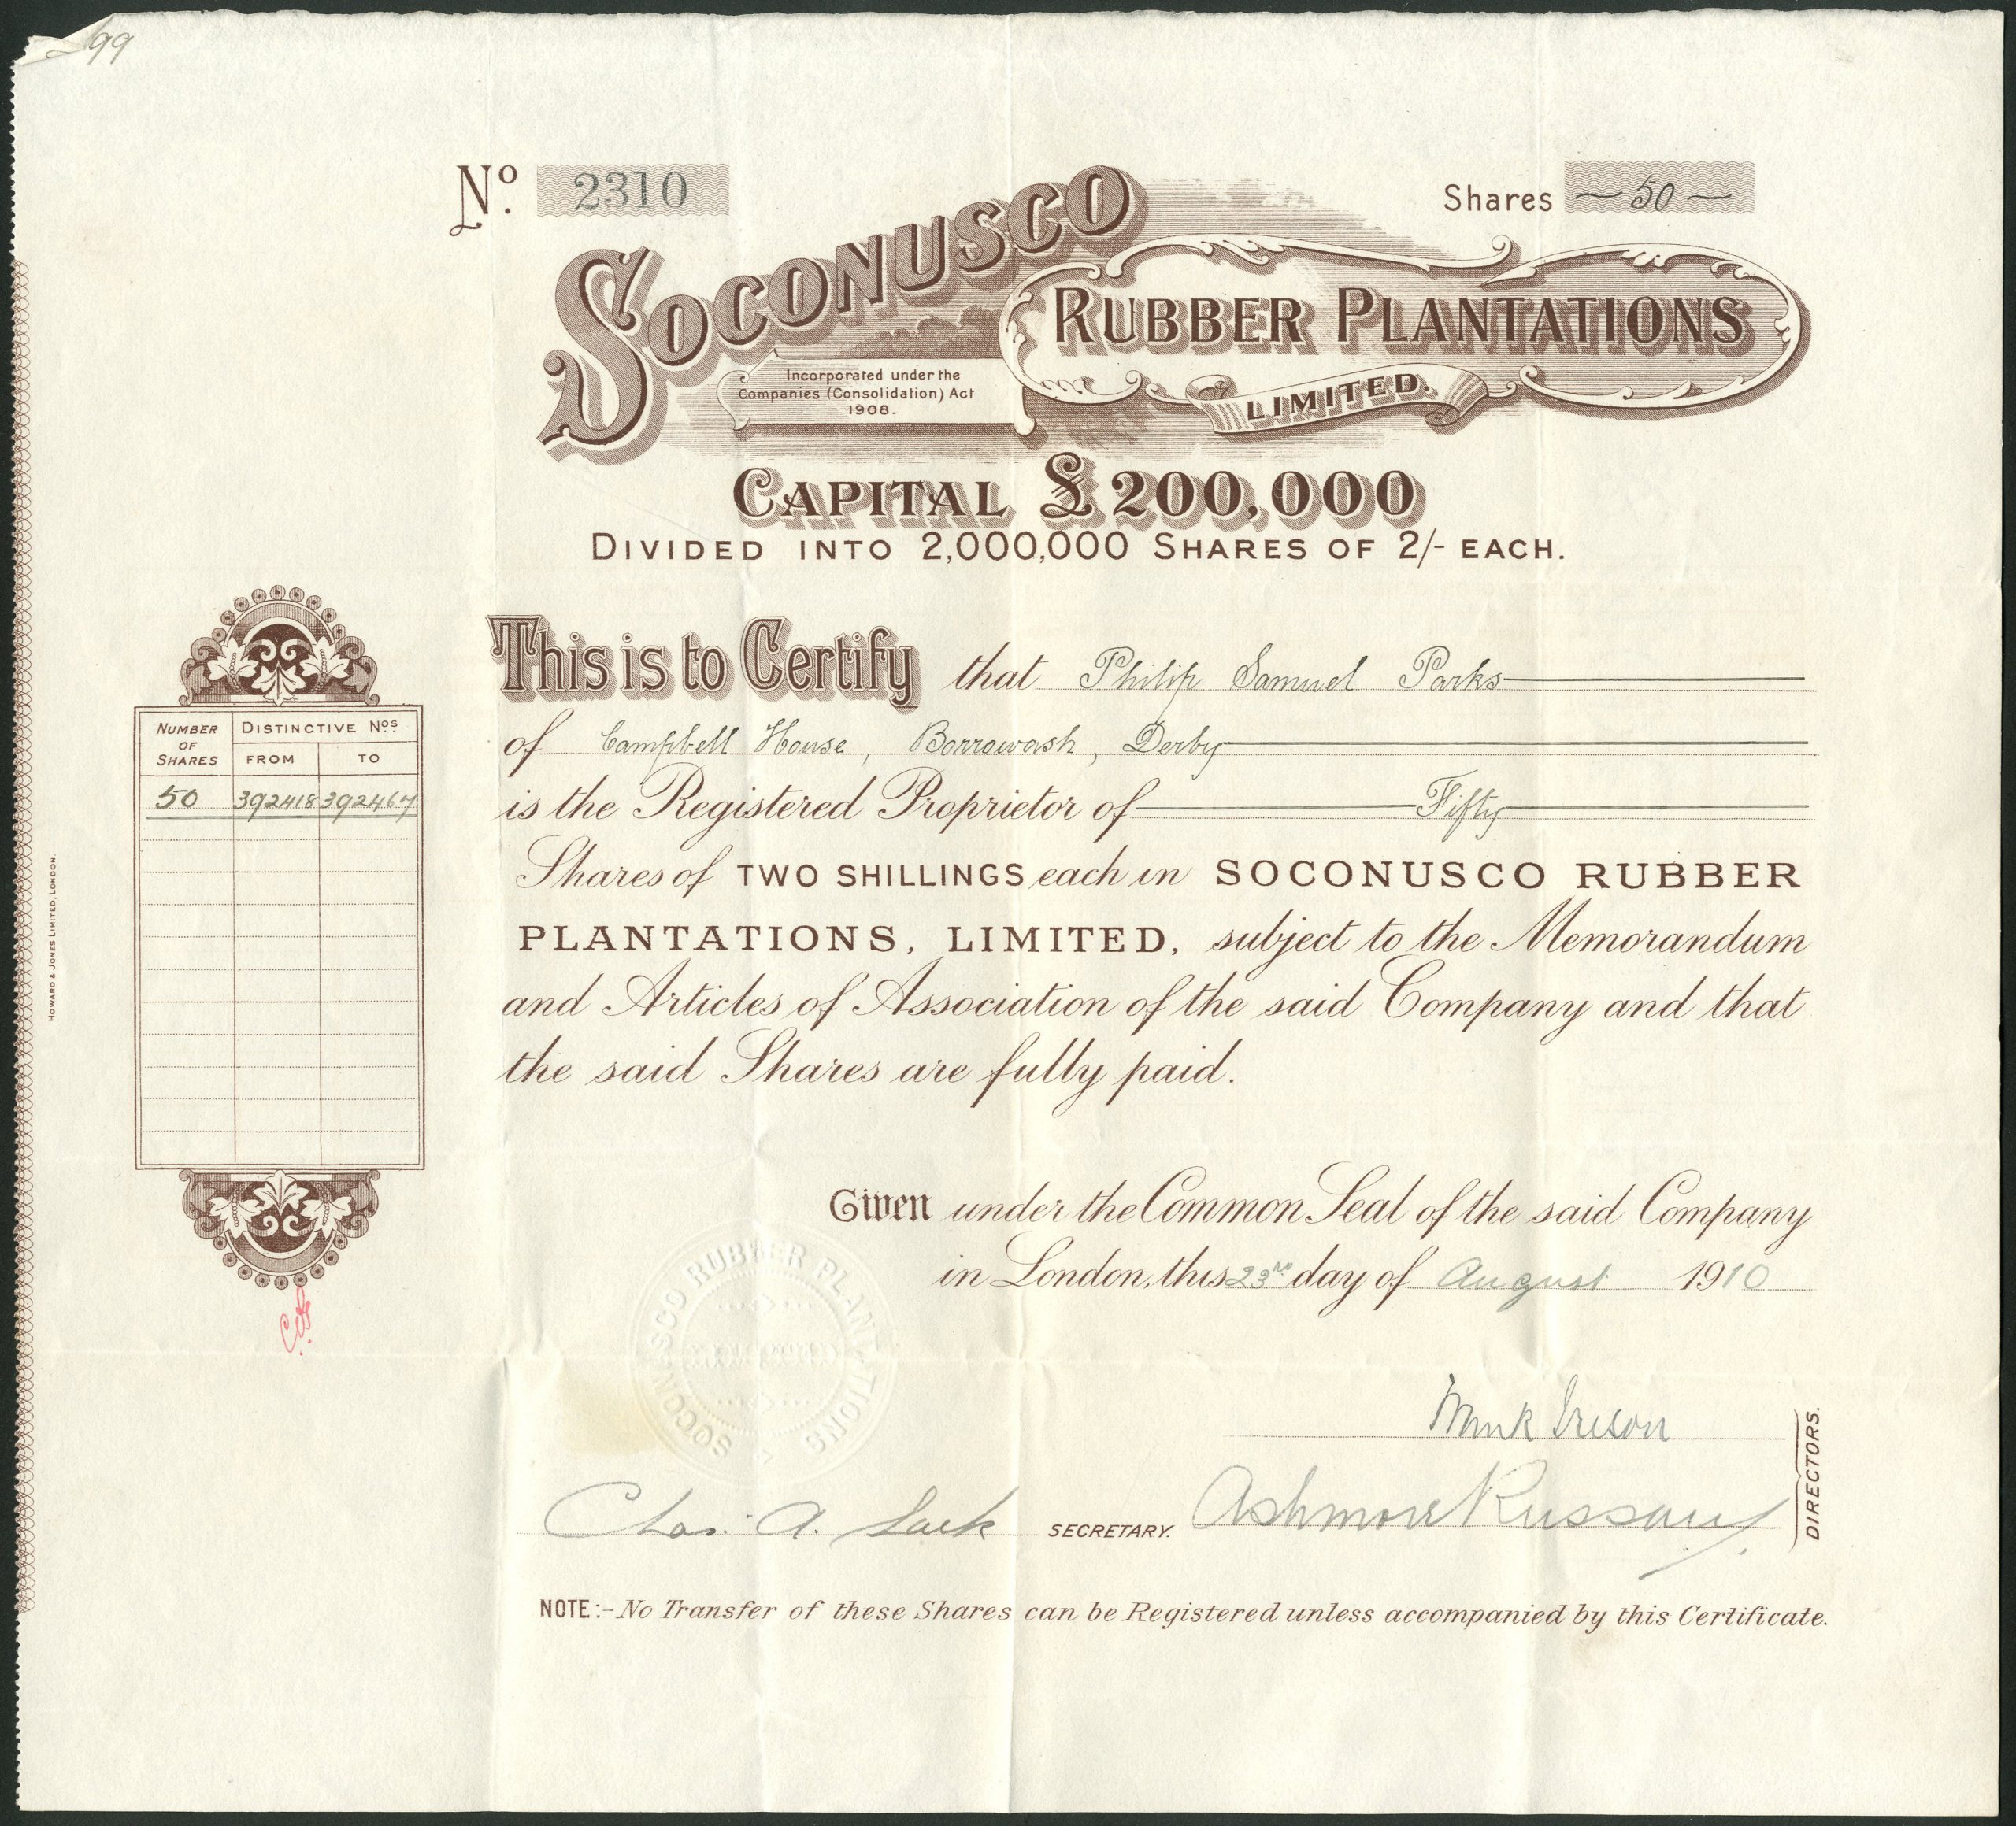 99
No. 2310
Shares — 50 —
SOCONUSCO
RUBBER PLANTATIONS
LIMITED.
Incorporated under the
Companies (Consolidation) Act
1908.
CAPITAL £200,000
DIVIDED INTO 2,000,000 SHARES OF 2/- EACH.
This is to Certify that Philip Samuel Parks
of Campbell House, Borrowash, Derby
is the Registered Proprietor of Fifty
Shares of TWO SHILLINGS each in SOCONUSCO RUBBER
PLANTATIONS, LIMITED, subject to the Memorandum
and Articles of Association of the said Company and that
the said Shares are fully paid.
NUMBER OF SHARES
DISTINCTIVE Nos
FROM TO
50 392418 392467
HOWARD & JONES LIMITED, LONDON.
Given under the Common Seal of the said Company
in London, this 23rd day of August 1910
SOCONUSCO RUBBER PLANTATIONS
Ashmore Russan
DIRECTORS.
Chas. A. Sack
SECRETARY.
NOTE:- No Transfer of these Shares can be Registered unless accompanied by this Certificate.